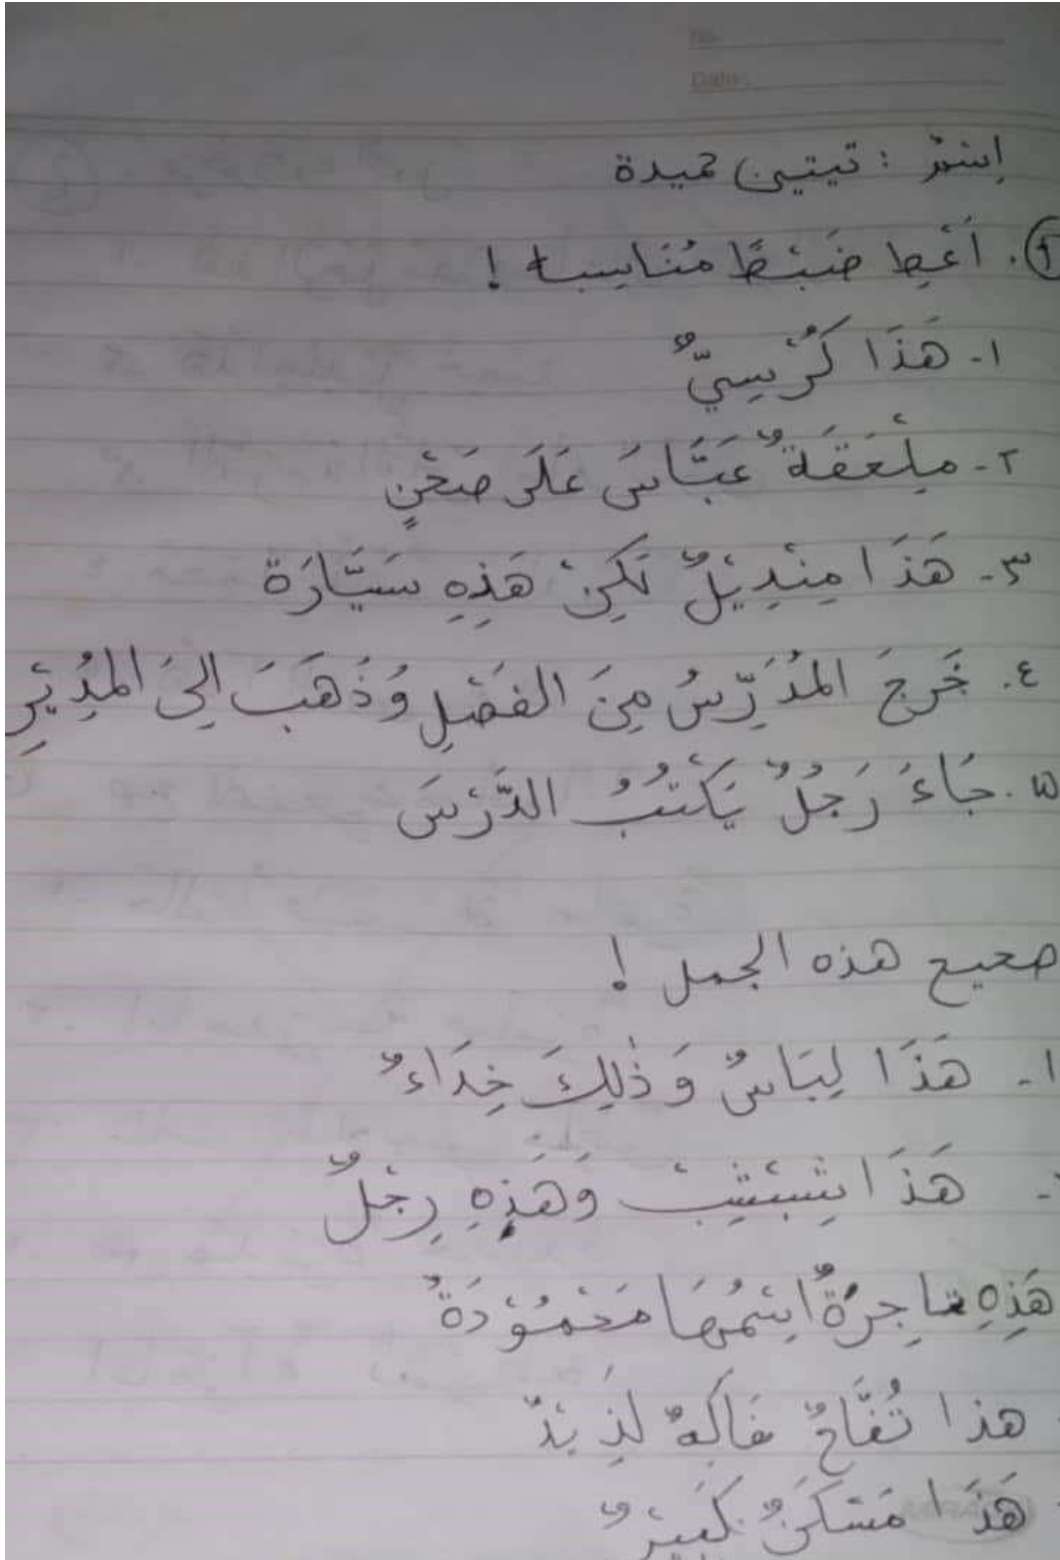 No.
Date:
إسم : تيتين حميدة
١. أَعْطِ ضَبْطًا مُنَاسِبا !
١- هَذَا كُرْسِيٌّ
٢- مِلْعَقَةٌ عَبَّاسَ عَلَى صَحْنٍ
٣- هَذَا مِنْدِيْلٌ لَكِنْ هَذِهِ سَيَّارَة
٤. خَرجَ المُدَرِّسُ مِنَ الفَصْلِ وَذَهَبَ اِلىَ المُدِيْرِ
٥. جَاءَ رَجُلٌ يَكْتُبُ الدَّرْسَ
صحيح هذه الجمل !
١- هَذَا لِبَاسٌ وَذٰلِكَ خِدَاءٌ
- هَذَا شِبْشِبْ وَهَذِهِ رِجْلٌ
هَذِهِ تاجِرَةٌ اِسْمُهَا مَحْمُوْدَةٌ
هذا تُفَّاحٌ فَاكِهٌ لَذِيْدٌ
هَذَا مَسْكَنٌ كَبِيْرٌ